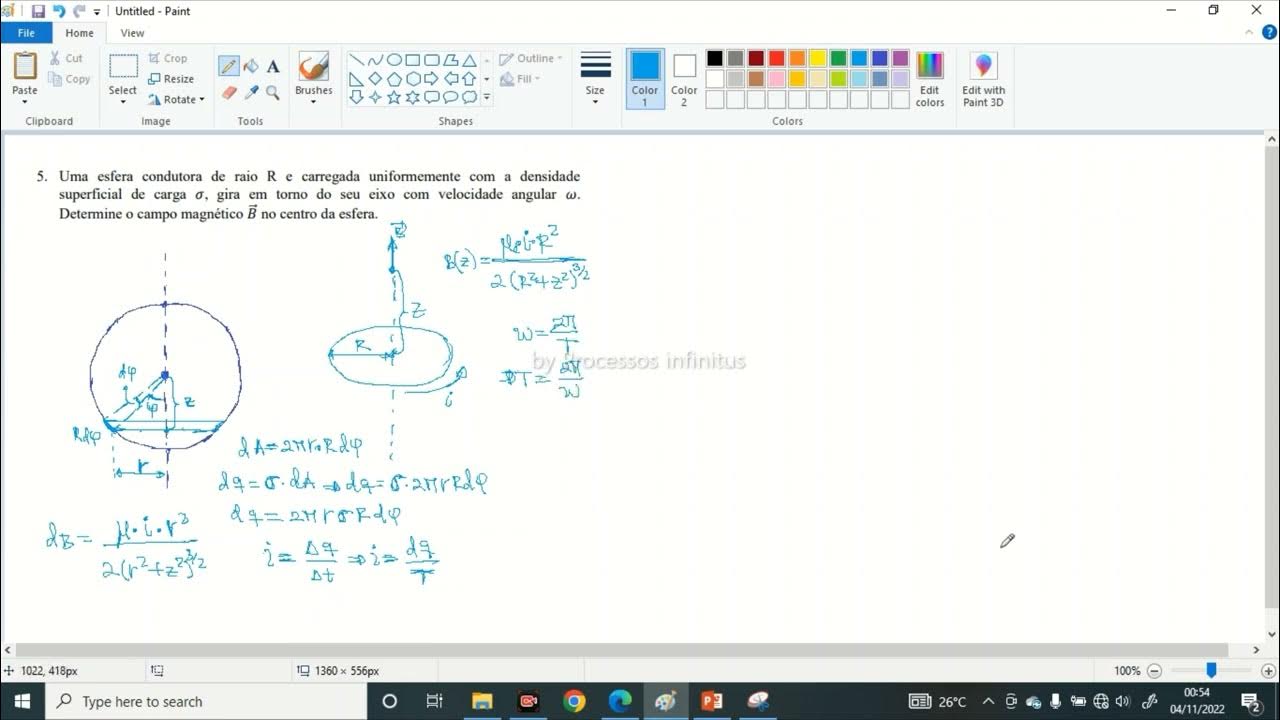 Untitled - Paint
File Home View
Paste Cut Copy Select Crop Resize Rotate Brushes Outline Fill Size Color 1 Color 2 Edit colors Edit with Paint 3D
Clipboard Image Tools Shapes Colors
5. Uma esfera condutora de raio R e carregada uniformemente com a densidade
superficial de carga σ, gira em torno do seu eixo com velocidade angular ω.
Determine o campo magnético B⃗ no centro da esfera.
B⃗
B(z) = μ₀·i·R² / 2(R²+z²)^3/2
z
R
i
w = 2π/T
⇒T = 2π/w
by Processos infinitus
dφ
φ
z
Rdφ
r
dA = 2πr·Rdφ
dq = σ·dA ⇒ dq = σ·2πrRdφ
dq = 2πrσRdφ
dB = μ·i·r² / 2(r²+z²)^3/2
i = Δq/Δt ⇒ i = dq/T
1022, 418px 1360 × 556px 100%
Type here to search 26°C 00:54
04/11/2022 2